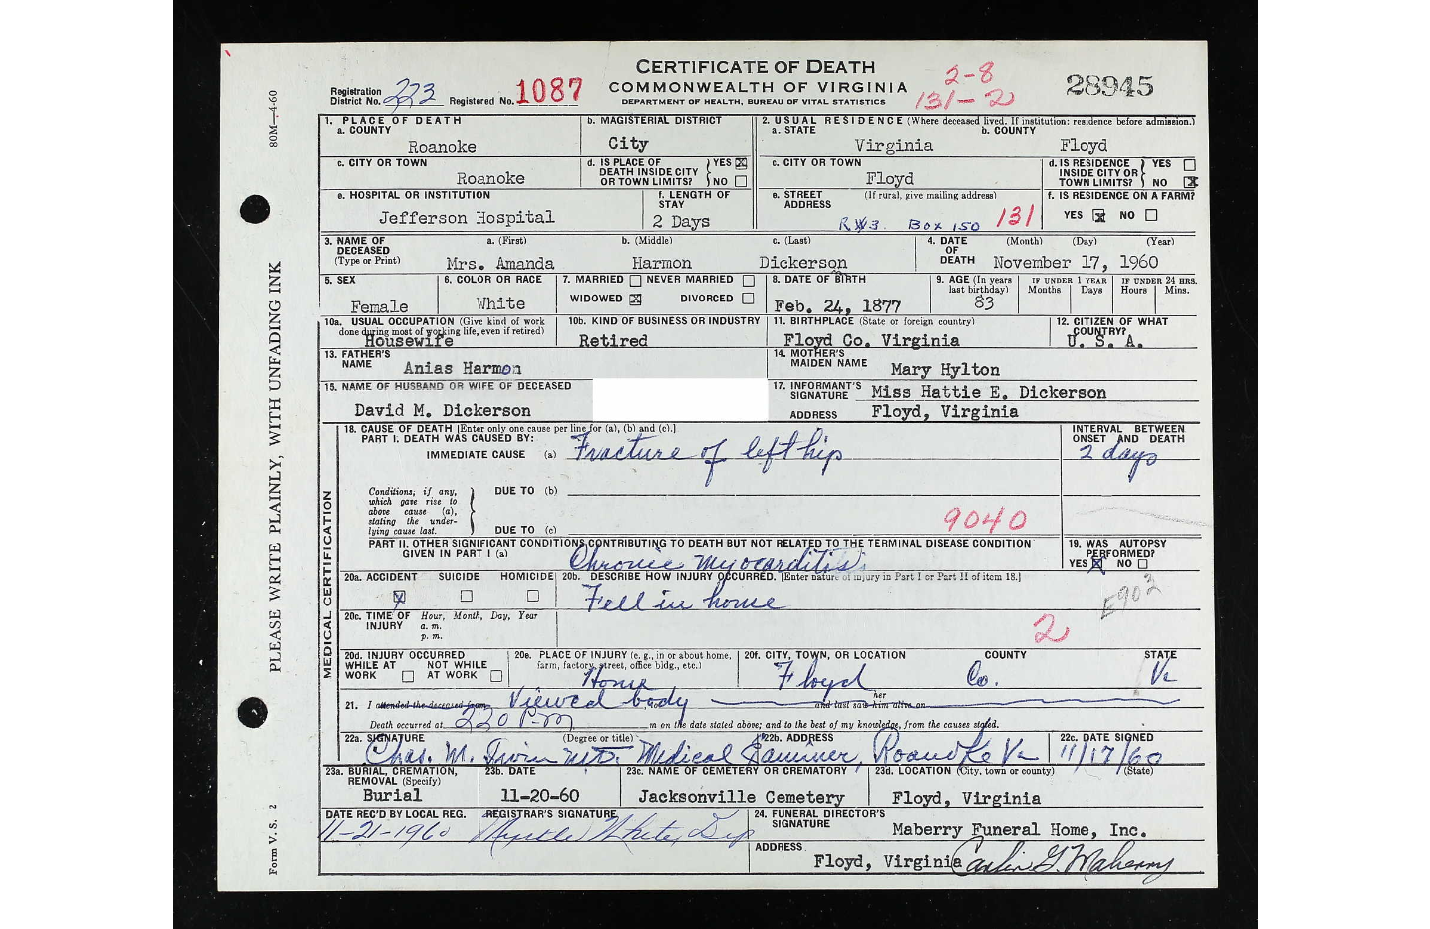 CERTIFICATE OF DEATH
COMMONWEALTH OF VIRGINIA
DEPARTMENT OF HEALTH, BUREAU OF VITAL STATISTICS
Registration District No. 223 Registered No. 1087
2-8
131-2
28945
80M—4-60
PLEASE WRITE PLAINLY, WITH UNFADING INK
Form V. S. 2
1. PLACE OF DEATH
a. COUNTY
Roanoke
b. MAGISTERIAL DISTRICT
City
2. USUAL RESIDENCE (Where deceased lived. If institution: residence before admission.)
a. STATE
Virginia
b. COUNTY
Floyd
c. CITY OR TOWN
Roanoke
d. IS PLACE OF DEATH INSIDE CITY OR TOWN LIMITS? YES NO
c. CITY OR TOWN
Floyd
d. IS RESIDENCE INSIDE CITY OR TOWN LIMITS? YES NO
e. HOSPITAL OR INSTITUTION
Jefferson Hospital
f. LENGTH OF STAY
2 Days
e. STREET ADDRESS (If rural, give mailing address)
Box 150 131
f. IS RESIDENCE ON A FARM?
YES NO
3. NAME OF DECEASED (Type or Print)
a. (First)
Mrs. Amanda
b. (Middle)
Harmon
c. (Last)
Dickerson
4. DATE OF DEATH (Month) (Day) (Year)
November 17, 1960
5. SEX
Female
6. COLOR OR RACE
White
7. MARRIED NEVER MARRIED
WIDOWED DIVORCED
8. DATE OF BIRTH
Feb. 24, 1877
9. AGE (In years last birthday)
83
IF UNDER 1 YEAR
Months Days
IF UNDER 24 HRS.
Hours Mins.
10a. USUAL OCCUPATION (Give kind of work done during most of working life, even if retired)
Housewife
10b. KIND OF BUSINESS OR INDUSTRY
Retired
11. BIRTHPLACE (State or foreign country)
Floyd Co. Virginia
12. CITIZEN OF WHAT COUNTRY?
U. S. A.
13. FATHER'S NAME
Anias Harmon
14. MOTHER'S MAIDEN NAME
Mary Hylton
15. NAME OF HUSBAND OR WIFE OF DECEASED
David M. Dickerson
17. INFORMANT'S SIGNATURE Miss Hattie E. Dickerson
ADDRESS Floyd, Virginia
MEDICAL CERTIFICATION
18. CAUSE OF DEATH [Enter only one cause per line for (a), (b) and (c).]
PART I. DEATH WAS CAUSED BY:
IMMEDIATE CAUSE (a) Fracture of left hip
INTERVAL BETWEEN ONSET AND DEATH
2 days
Conditions, if any, which gave rise to above cause (a), stating the underlying cause last.
DUE TO (b)
DUE TO (c)
9040
PART II. OTHER SIGNIFICANT CONDITIONS CONTRIBUTING TO DEATH BUT NOT RELATED TO THE TERMINAL DISEASE CONDITION GIVEN IN PART I (a)
Chronic myocarditis
19. WAS AUTOPSY PERFORMED?
YES NO
20a. ACCIDENT SUICIDE HOMICIDE
20b. DESCRIBE HOW INJURY OCCURRED. [Enter nature of injury in Part I or Part II of item 18.]
Fell in home
E903
20c. TIME OF INJURY Hour, Month, Day, Year
a. m.
p. m.
2
20d. INJURY OCCURRED
WHILE AT WORK NOT WHILE AT WORK
20e. PLACE OF INJURY (e. g., in or about home, farm, factory, street, office bldg., etc.)
Home
20f. CITY, TOWN, OR LOCATION COUNTY STATE
Floyd Co. Va
21. I attended the deceased from Viewed body and last saw him her alive on
Death occurred at 220 P.m m on the date stated above; and to the best of my knowledge, from the causes stated.
22a. SIGNATURE (Degree or title)
Chas. M. Irvin M.D. Medical Examiner,
22b. ADDRESS
Roanoke Va
22c. DATE SIGNED
11/17/60
23a. BURIAL, CREMATION, REMOVAL (Specify)
Burial
23b. DATE
11-20-60
23c. NAME OF CEMETERY OR CREMATORY
Jacksonville Cemetery
23d. LOCATION (City, town or county) (State)
Floyd, Virginia
DATE REC'D BY LOCAL REG.
11-21-1960
REGISTRAR'S SIGNATURE
Myrtle White, Dep
24. FUNERAL DIRECTOR'S SIGNATURE
Maberry Funeral Home, Inc.
ADDRESS
Floyd, Virginia
Maberry